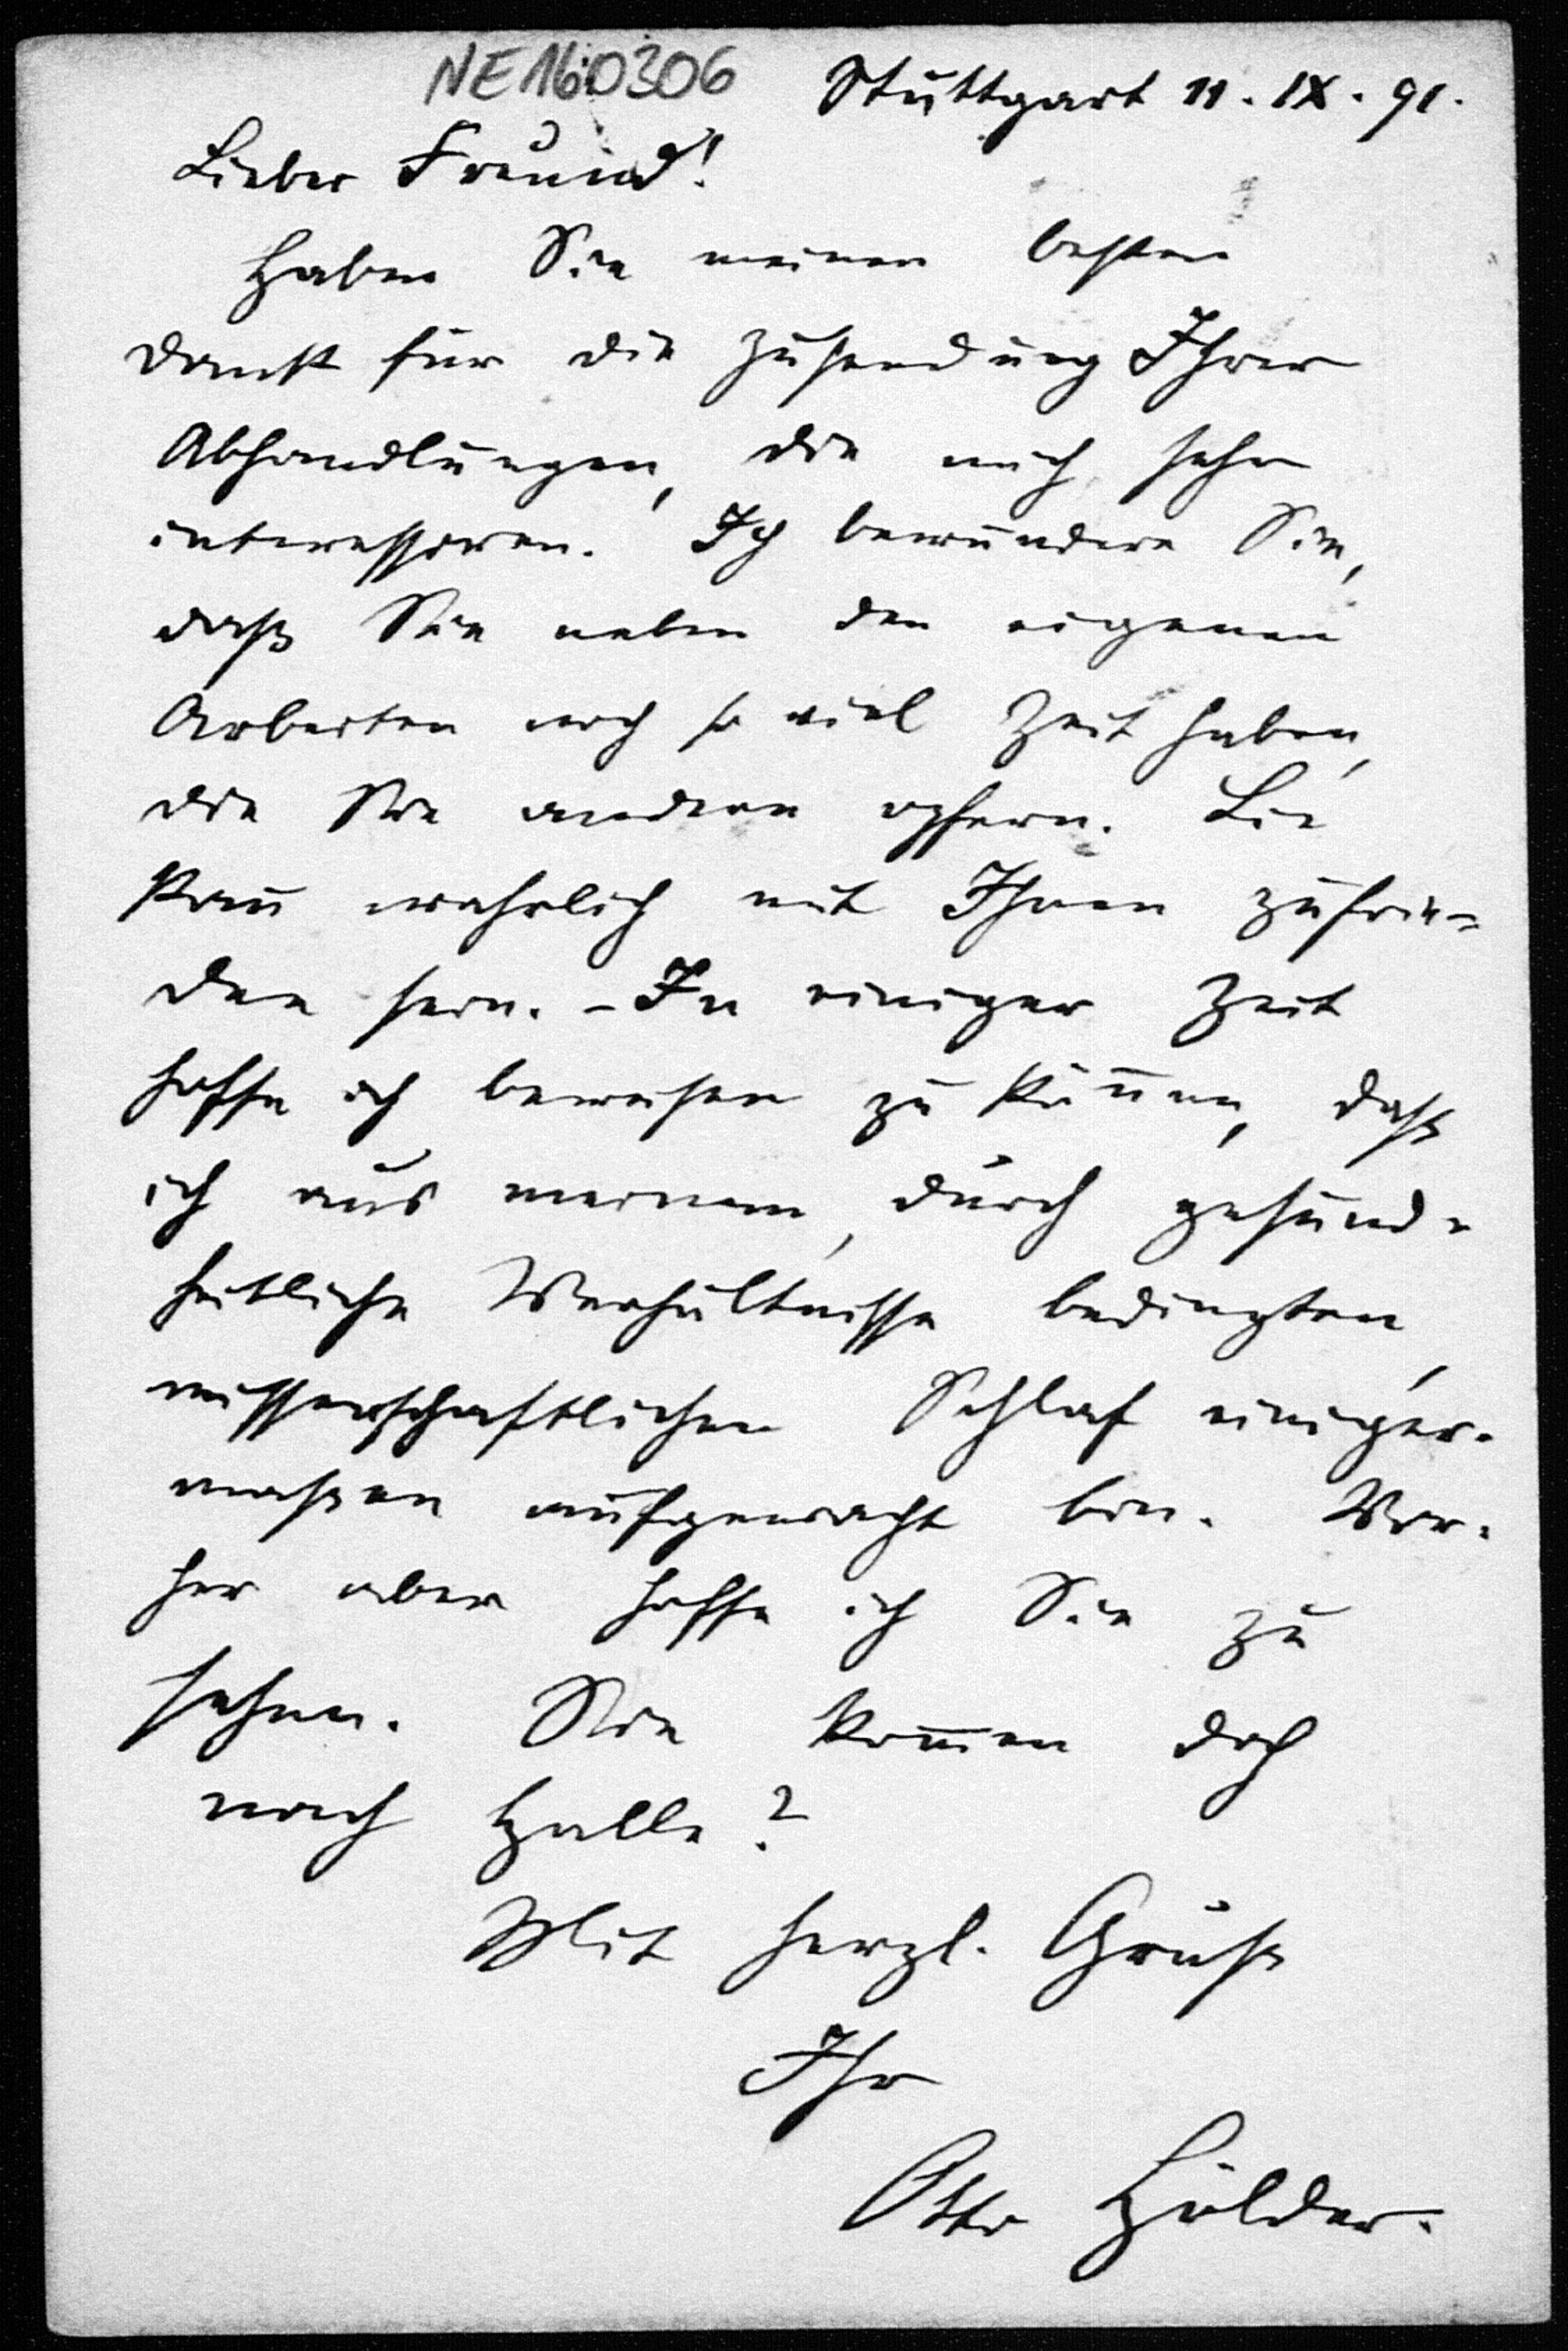 NE160306
Stuttgart 11. IX. 91.
Lieber Freund!
Haben Sie meinen besten
Dank für die Zusendung Ihrer
Abhandlungen, die mich sehr
interessiren. Ich bewundere Sie,
daß Sie neben den eigenen
Arbeiten noch so viel Zeit haben,
die Sie andern opfern. Lie
kann wahrlich mit Ihnen zufrie-
den sein. - In einiger Zeit
hoffe ich beweisen zu können, daß
ich aus meinem, durch gesund-
heitliche Verhältnisse bedingten,
wissenschaftlichen Schlaf einiger-
maßen aufgewacht bin. Vor-
her aber hoffe ich Sie zu
sehen. Sie kommen doch
nach Halle?
Mit herzl. Gruß
Ihr
Otto Hölder.